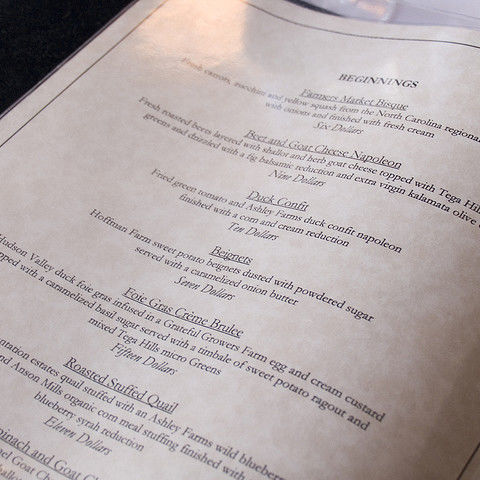 BEGINNINGS
Farmers Market Bisque
Fresh carrots, zucchini and yellow squash from the North Carolina regional
with onions and finished with fresh cream
Six Dollars
Beet and Goat Cheese Napoleon
Fresh roasted beets layered with shallot and herb goat cheese topped with Tega Hills
greens and drizzled with a fig balsamic reduction and extra virgin kalamata olive
Nine Dollars
Duck Confit
Fried green tomato and Ashley Farms duck confit napoleon
finished with a corn and cream reduction
Ten Dollars
Beignets
Hoffman Farm sweet potato beignets dusted with powdered sugar
served with a caramelized onion butter
Seven Dollars
Foie Gras Crème Brulee
Hudson Valley duck foie gras infused in a Grateful Growers Farm egg and cream custard
topped with a caramelized basil sugar served with a timbale of sweet potato ragout and
mixed Tega Hills micro Greens
Fifteen Dollars
Roasted Stuffed Quail
estates quail stuffed with an Ashley Farms wild blueberry
and Anson Mills organic corn meal stuffing finished with
blueberry syrah reduction
Eleven Dollars
Spinach and Goat
Goat Chee